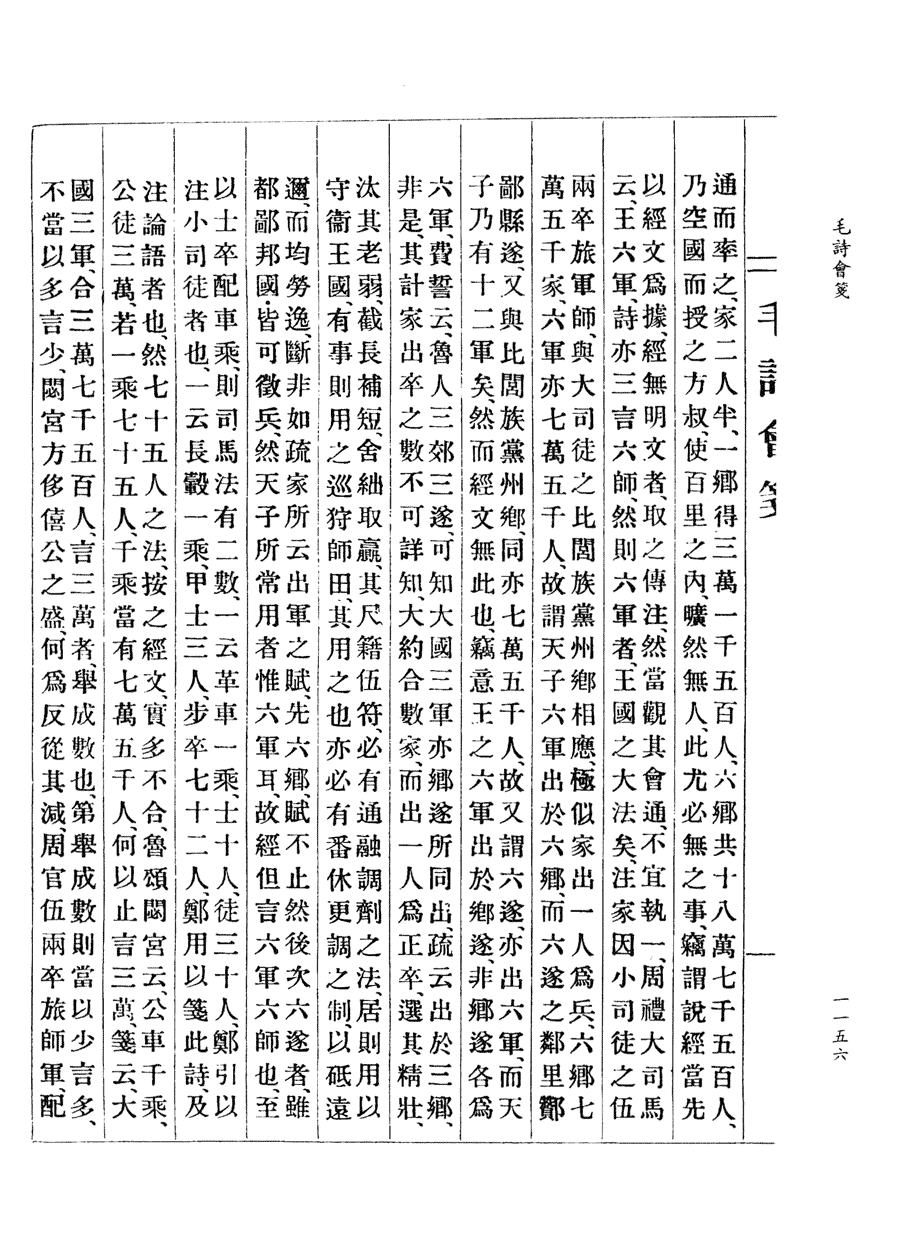 毛詩會箋
一一五六
毛詩會箋
通而率之、家二人半、一鄉得三萬一千五百人、六鄉共十八萬七千五百人、
乃空國而授之方叔、使百里之內、曠然無人、此尤必無之事、竊謂說經當先
以經文爲據、經無明文者、取之傳注、然當觀其會通、不宜執一、周禮大司馬
云、王六軍、詩亦三言六師、然則六軍者、王國之大法矣、注家因小司徒之伍
兩卒旅軍師、與大司徒之比閭族黨州鄉相應、極似家出一人爲兵、六鄉七
萬五千家、六軍亦七萬五千人、故謂天子六軍出於六鄉、而六遂之鄰里酇
鄙縣遂、又與比閭族黨州鄉、同亦七萬五千人、故又謂六遂、亦出六軍、而天
子乃有十二軍矣、然而經文無此也、竊意王之六軍出於鄉遂、非鄉遂各爲
六軍、費誓云、魯人三郊三遂、可知大國三軍亦鄉遂所同出、疏云出於三鄉、
非是、其計家出卒之數不可詳知、大約合數家、而出一人爲正卒、選其精壯、
汰其老弱、截長補短、舍絀取贏、其尺籍伍符、必有通融調劑之法、居則用以
守衞王國、有事則用之巡狩師田、其用之也亦必有番休更調之制、以砥遠
邇、而均勞逸、斷非如疏家所云出軍之賦、先六鄉、賦不止然後次六遂者、雖
都鄙邦國、皆可徵兵、然天子所常用者惟六軍耳、故經但言六軍六師也、至
以士卒配車乘、則司馬法有二數、一云革車一乘、士十人、徒三十人、鄭引以
注小司徒者也、一云長轂一乘、甲士三人、步卒七十二人、鄭用以箋此詩、及
注論語者也、然七十五人之法、按之經文、實多不合、魯頌閟宮云、公車千乘、
公徒三萬、若一乘七十五人、千乘當有七萬五千人、何以止言三萬、箋云、大
國三軍、合三萬七千五百人、言三萬者、舉成數也、第舉成數則當以少言多、
不當以多言少、閟宮方侈僖公之盛、何爲反從其減、周官伍兩卒旅師軍、配